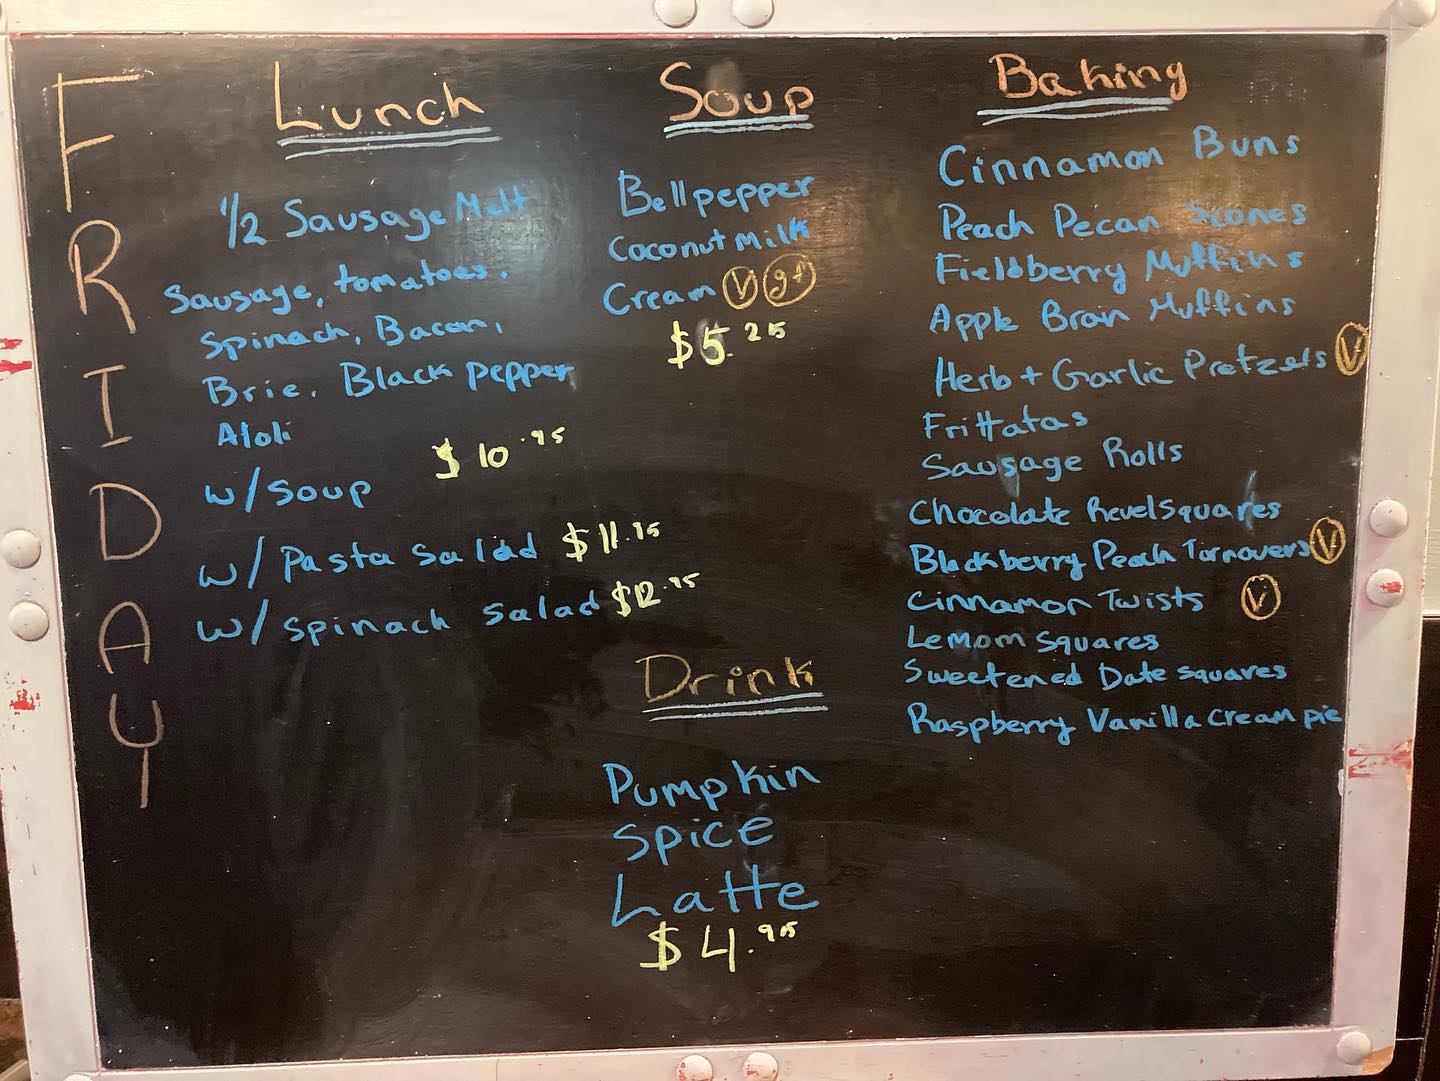 FRIDAY
Lunch
1/2 Sausage Melt
Sausage, tomatoes,
Spinach, Bacon,
Brie, Black pepper
Aioli
$10.95
w/soup
w/Pasta salad $11.95
w/spinach salad $12.95
Soup
Bellpepper
Coconut milk
Cream V gf
$5.25
Drink
Pumpkin
Spice
Latte
$4.95
Baking
Cinnamon Buns
Peach Pecan Scones
Fieldberry Muffins
Apple Bran Muffins
Herb + Garlic Pretzels V
Frittatas
Sausage Rolls
Chocolate Revel squares
Blackberry Peach Turnovers V
Cinnamon Twists V
Lemom squares
Sweetened Date squares
Raspberry Vanilla cream pie